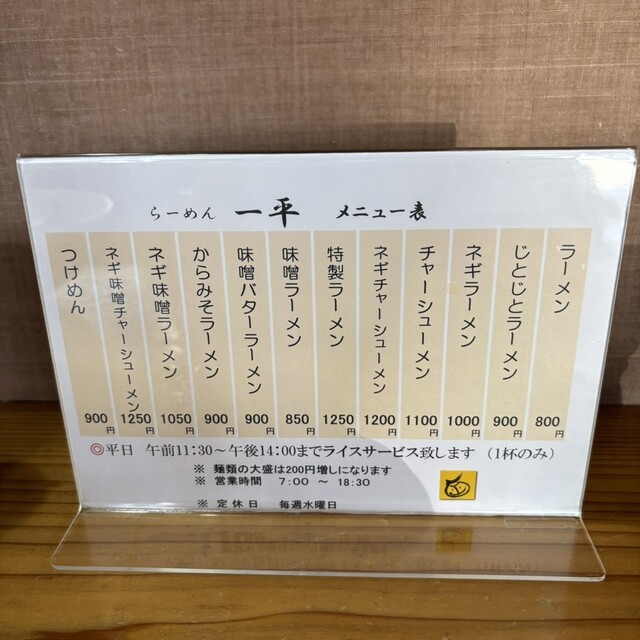 らーめん 一平 メニュー表
ラーメン 800円
じとじとラーメン 900円
ネギラーメン 1000円
チャーシューメン 1100円
ネギチャーシューメン 1200円
特製ラーメン 1250円
味噌ラーメン 850円
味噌バターラーメン 900円
からみそラーメン 900円
ネギ味噌ラーメン 1050円
ネギ味噌チャーシューメン 1250円
つけめん 900円
◎平日 午前11:30～午後14:00までライスサービス致します (1杯のみ)
※ 麺類の大盛は200円増しになります
※ 営業時間 7:00 ～ 18:30
※ 定休日 毎週水曜日